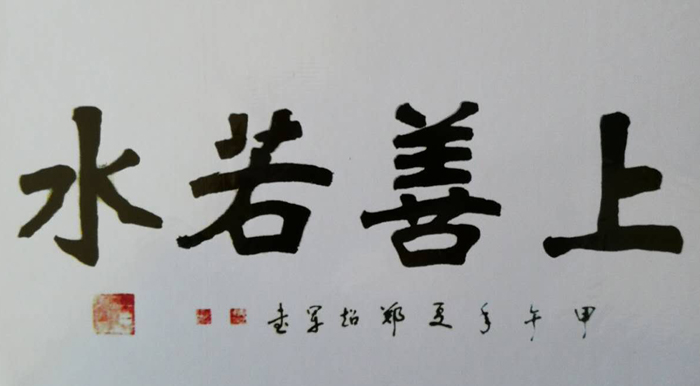 上善若水
甲午年夏郑超军书